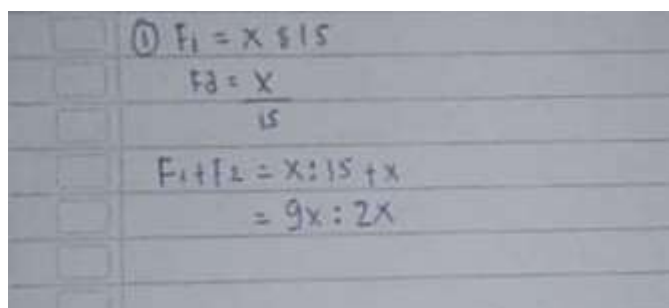 ① F1 = x : 15
F2 = x
15
F1 + F2 = x : 15 + x
= 9x : 2x